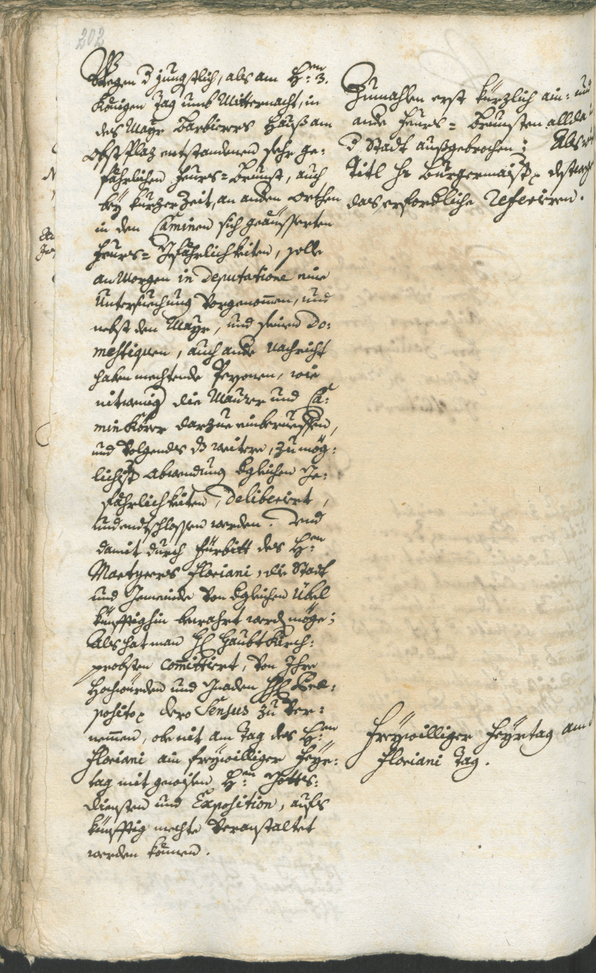 202
Wegen d jüngstlich, als am H:en 3.
Königen Tag umb Mitternacht, in
des Mayr Barbierers Haus am
Obstplaz entstandenen sehr ge:
fährlichen Feurs=Brunst, auch
bey kurzer Zeit, an anden orthen
in den Caminen sich geäusserten
Feurs=Gefährlichkeiten, solle
an Morgen in Deputatione eine
Untersuchung vorgenommen, und
nebst den Mayr, und seinen Do:
mestiquen, auch ande Nachricht
haben mechtende Personen, wie
nitwenig die Maurer und Ca:
minkörer darzue einberueffen,
und volgendes d weitere, zu mög:
lichst abwendung dglichen Ge:
fährlichkeiten, deliberirt,
und entschlossen werden. Und
damit durch Fürbitt des H:en
Martyrers Floriani, die Stadt
und Gemeinde von dglichen Übel
künfftighin bewahrt werd möge;
Als hat man HH Haubt Kirch:
probsten committiert, von Ihro
Hochwürden und Gnaden HH
dero Sensus zu ver:
nemmen, ob nit am Tag des H:en
Floriani ain freywilliger Feyr:
tag mit gewissen H:en Gotts:
diensten und Exposition, aufs
künfftig mechte veranstaltet
werden können.
Zumahlen erst kürzlich ain: und
ande Feurs=Brunsten alld in
d Stadt außgebrochen; Als
Titl Hr Burgermaister
das erfordliche referiren.
Freywilliger Feyrtag am
Floriani Tag.